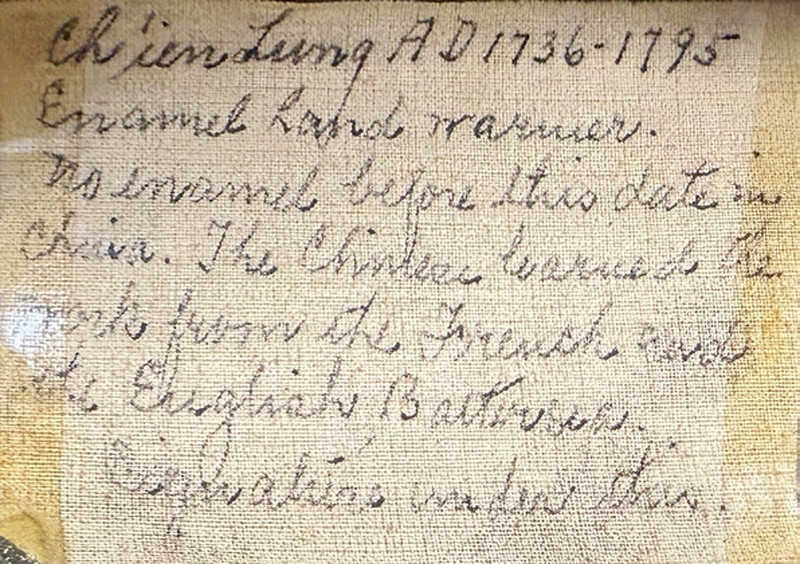 Ch'ien Lung A D 1736-1795
Enamel hand warmer.
No enamel before this date in
China. The Chinese learned the
work from the French and
the English Battersea.
Signature under this.